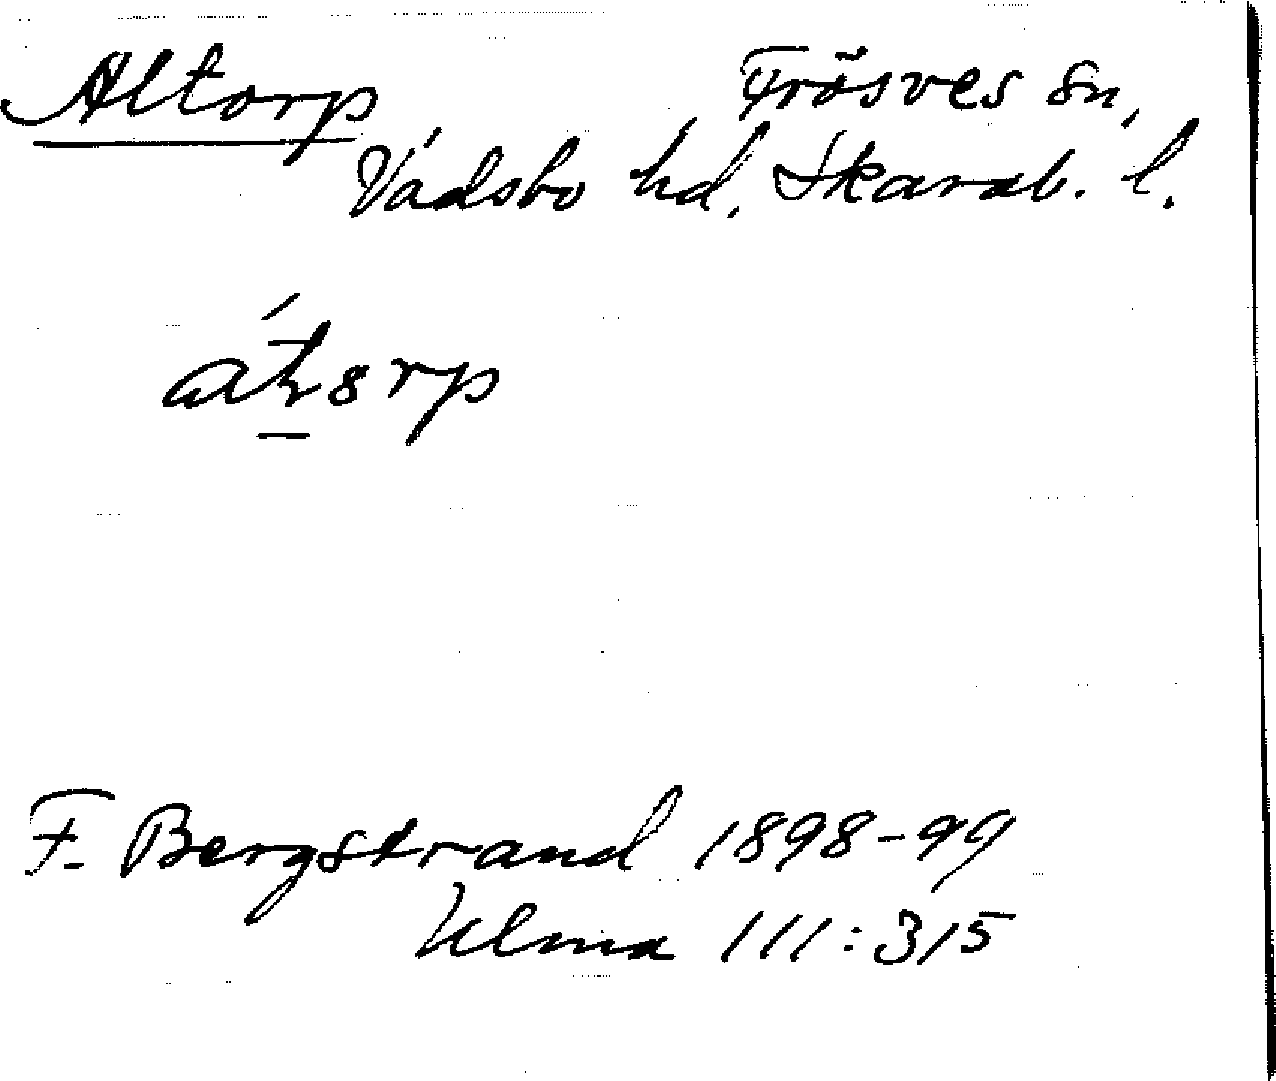 Altorp Frösves sn,
Vadsbo hd, Skarab. l.
F. Bergstrand 1898-99
Ulma 111:315